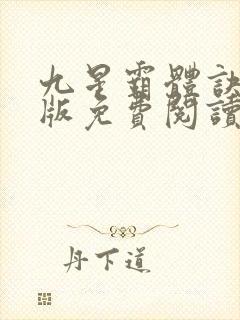 九星霸體訣
版免費閱讀
丹下道